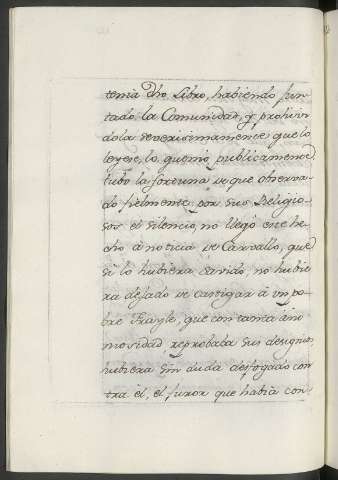 tenia dho Libro, habiendo jun-
tado la Comunidad, y prohivin
dola severisimamente que lo
leyese, lo quemò publicamente
tubo la fortuna de que observa-
do fielmente por sus Religio-
sos el silencio, no llegó este he-
cho á noticia de Carvallo, que
si lo hubiera savido, no hubie
ra dejado de castigar á un po-
bre Frayle, que con tanta ani
mosidad, reprobaba sus designios
hubiera sin duda desfogado con
tra èl, el furor que habia con-